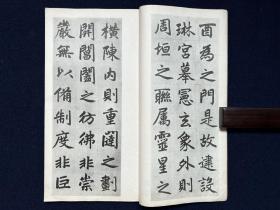 酉為之門是故建設
琳宮摹憲玄象外則
周垣之聯属靈星之
橫陳内則重闥之劃
開閶闔之彷彿非崇
嚴無以備制度非巨